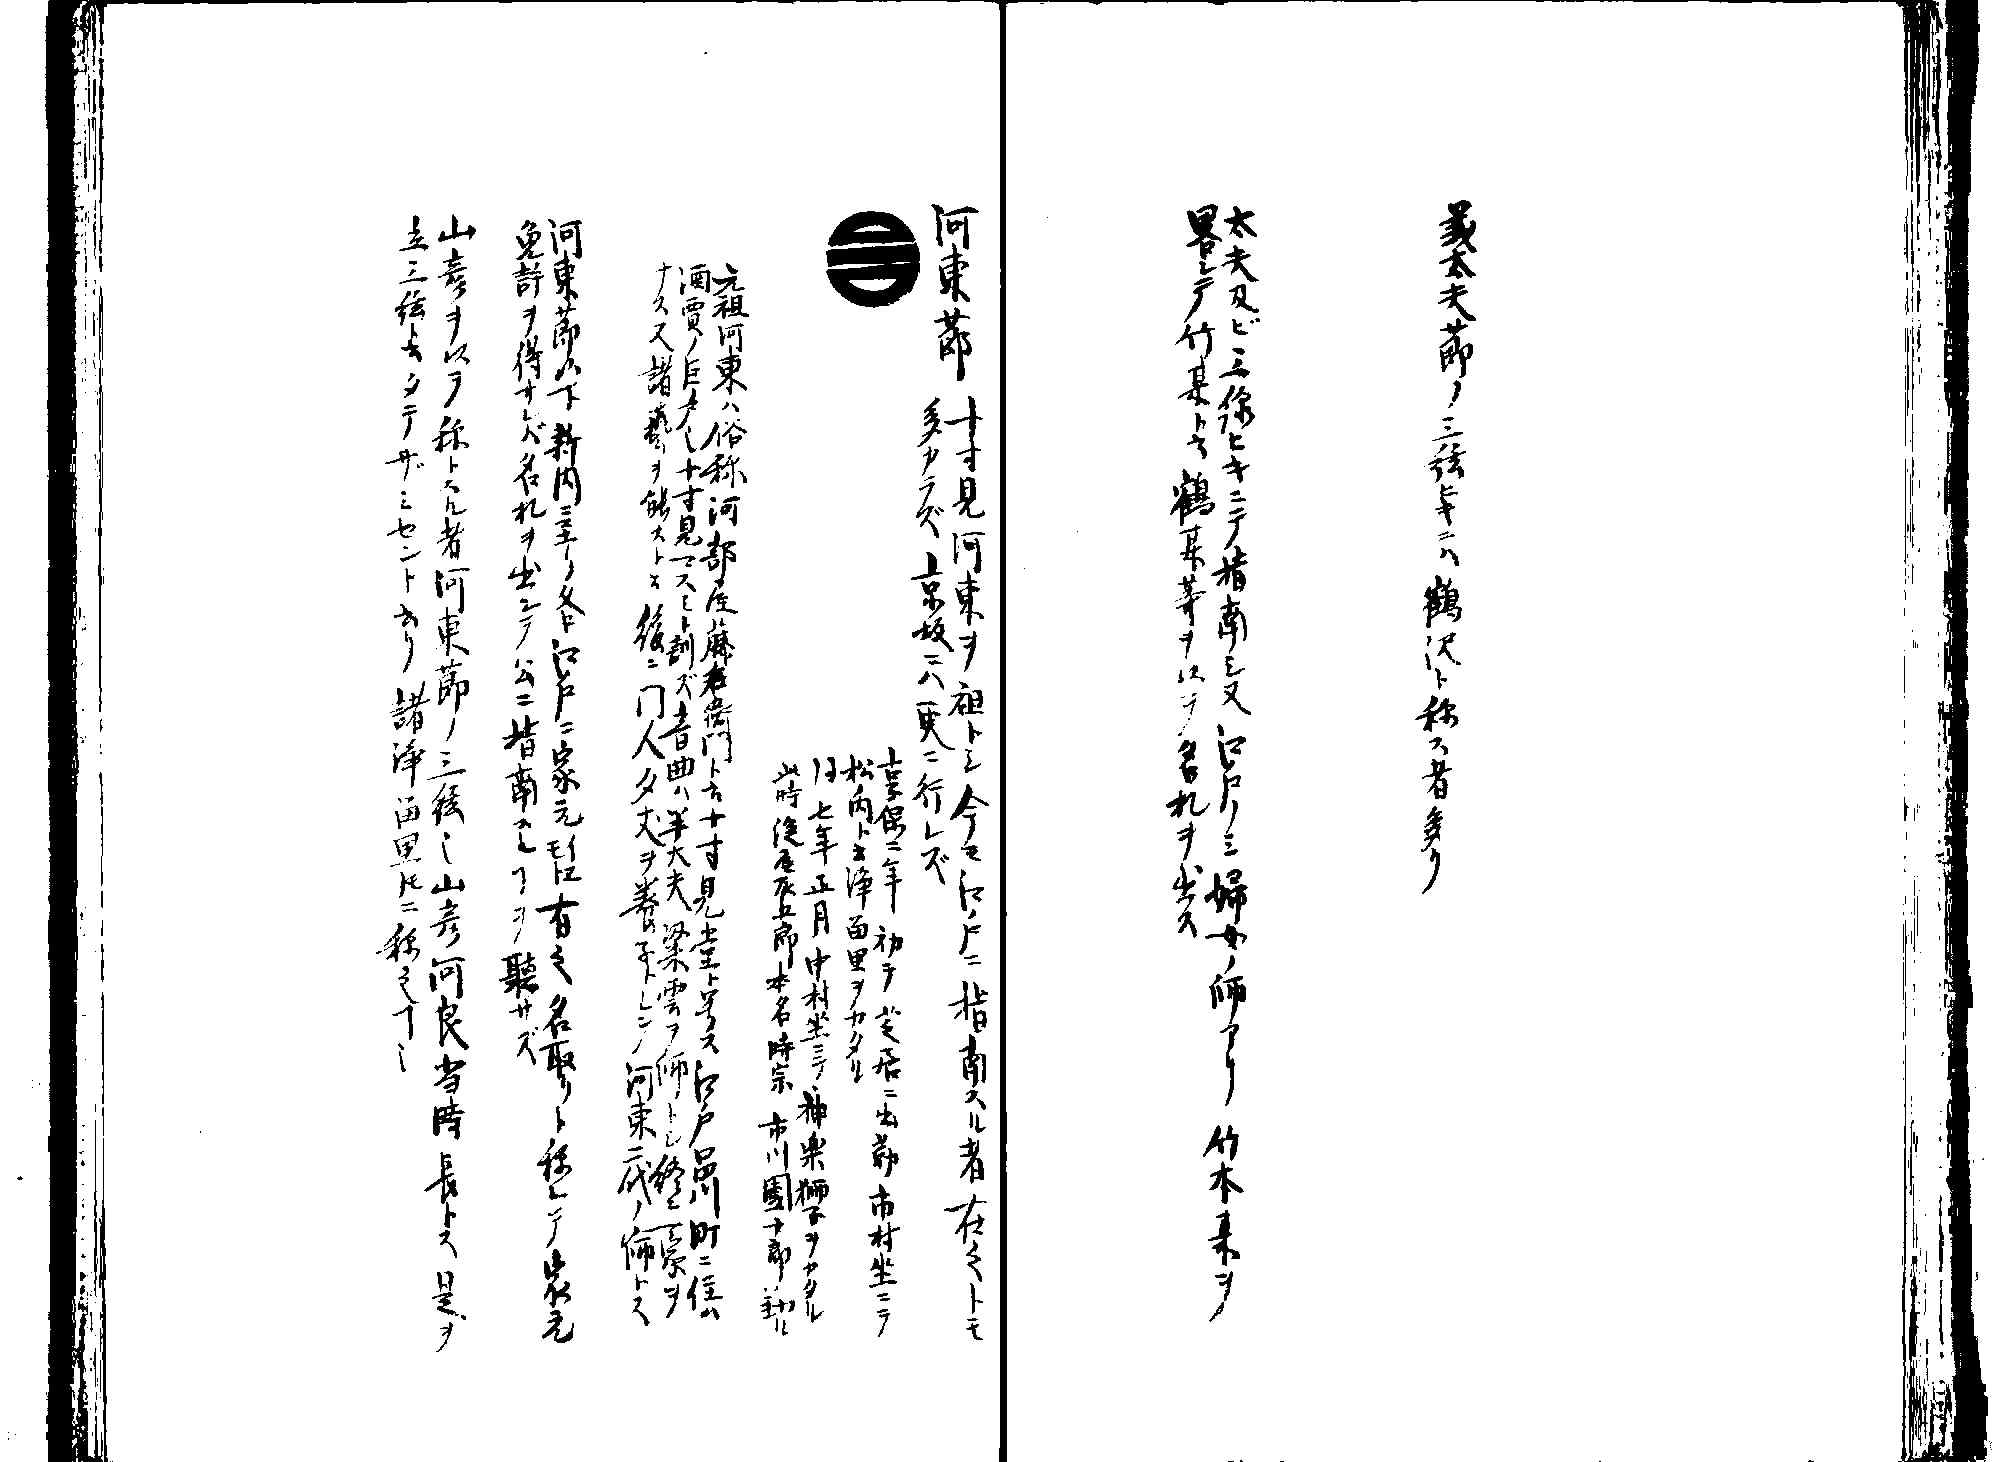 義太夫節ノ三弦ヒキニハ鶴沢ト称ス者多リ
太夫及ビ三線ヒキニテ指南シ又江戸ノミ婦女ノ師アリ竹本某ヲ
畧シテ竹某ト云鶴某等ヲ以テ名札ヲ出ス
河東節
十寸見河東ヲ祖トシ今モ江戸ニ指南スル者在之トモ
多カラズ京坂ニハ更ニ行レズ
享保二年初テ芝居ニ出勤市村坐ニテ
松内ト云浄畄里ヲカタル
同七年正月中村坐ニテ神楽獅子ヲカタル
此時 辰五郎本名時宗市川團十郎勤ル
元祖河東ハ俗称河部屋藤右衛門ト云十寸見堂ト号ス江戸品川町ニ住ム
酒賈ノ巨 十寸見マスミト訓ズ音曲ハ半太夫梁雲ヲ師トシ終ニ一家ヲ
ナス又諸藝ヲ能ストモ後ニ門人夕丈ヲ養子トシ河東二代ノ師トス
河東節以下新内ニ至リ各江戸ニ家元 有之名取リト称シテ家元
免許ヲ得サレバ名札ヲ出シテ公ニ指南スルヿヲ聴サズ
山彦ヲ以テ称トスル者河東節ノ三弦也山彦河良当時長トス是ヲ
立三弦ト云タテザミセント云リ諸浄畄里トモニ称之ヿ也